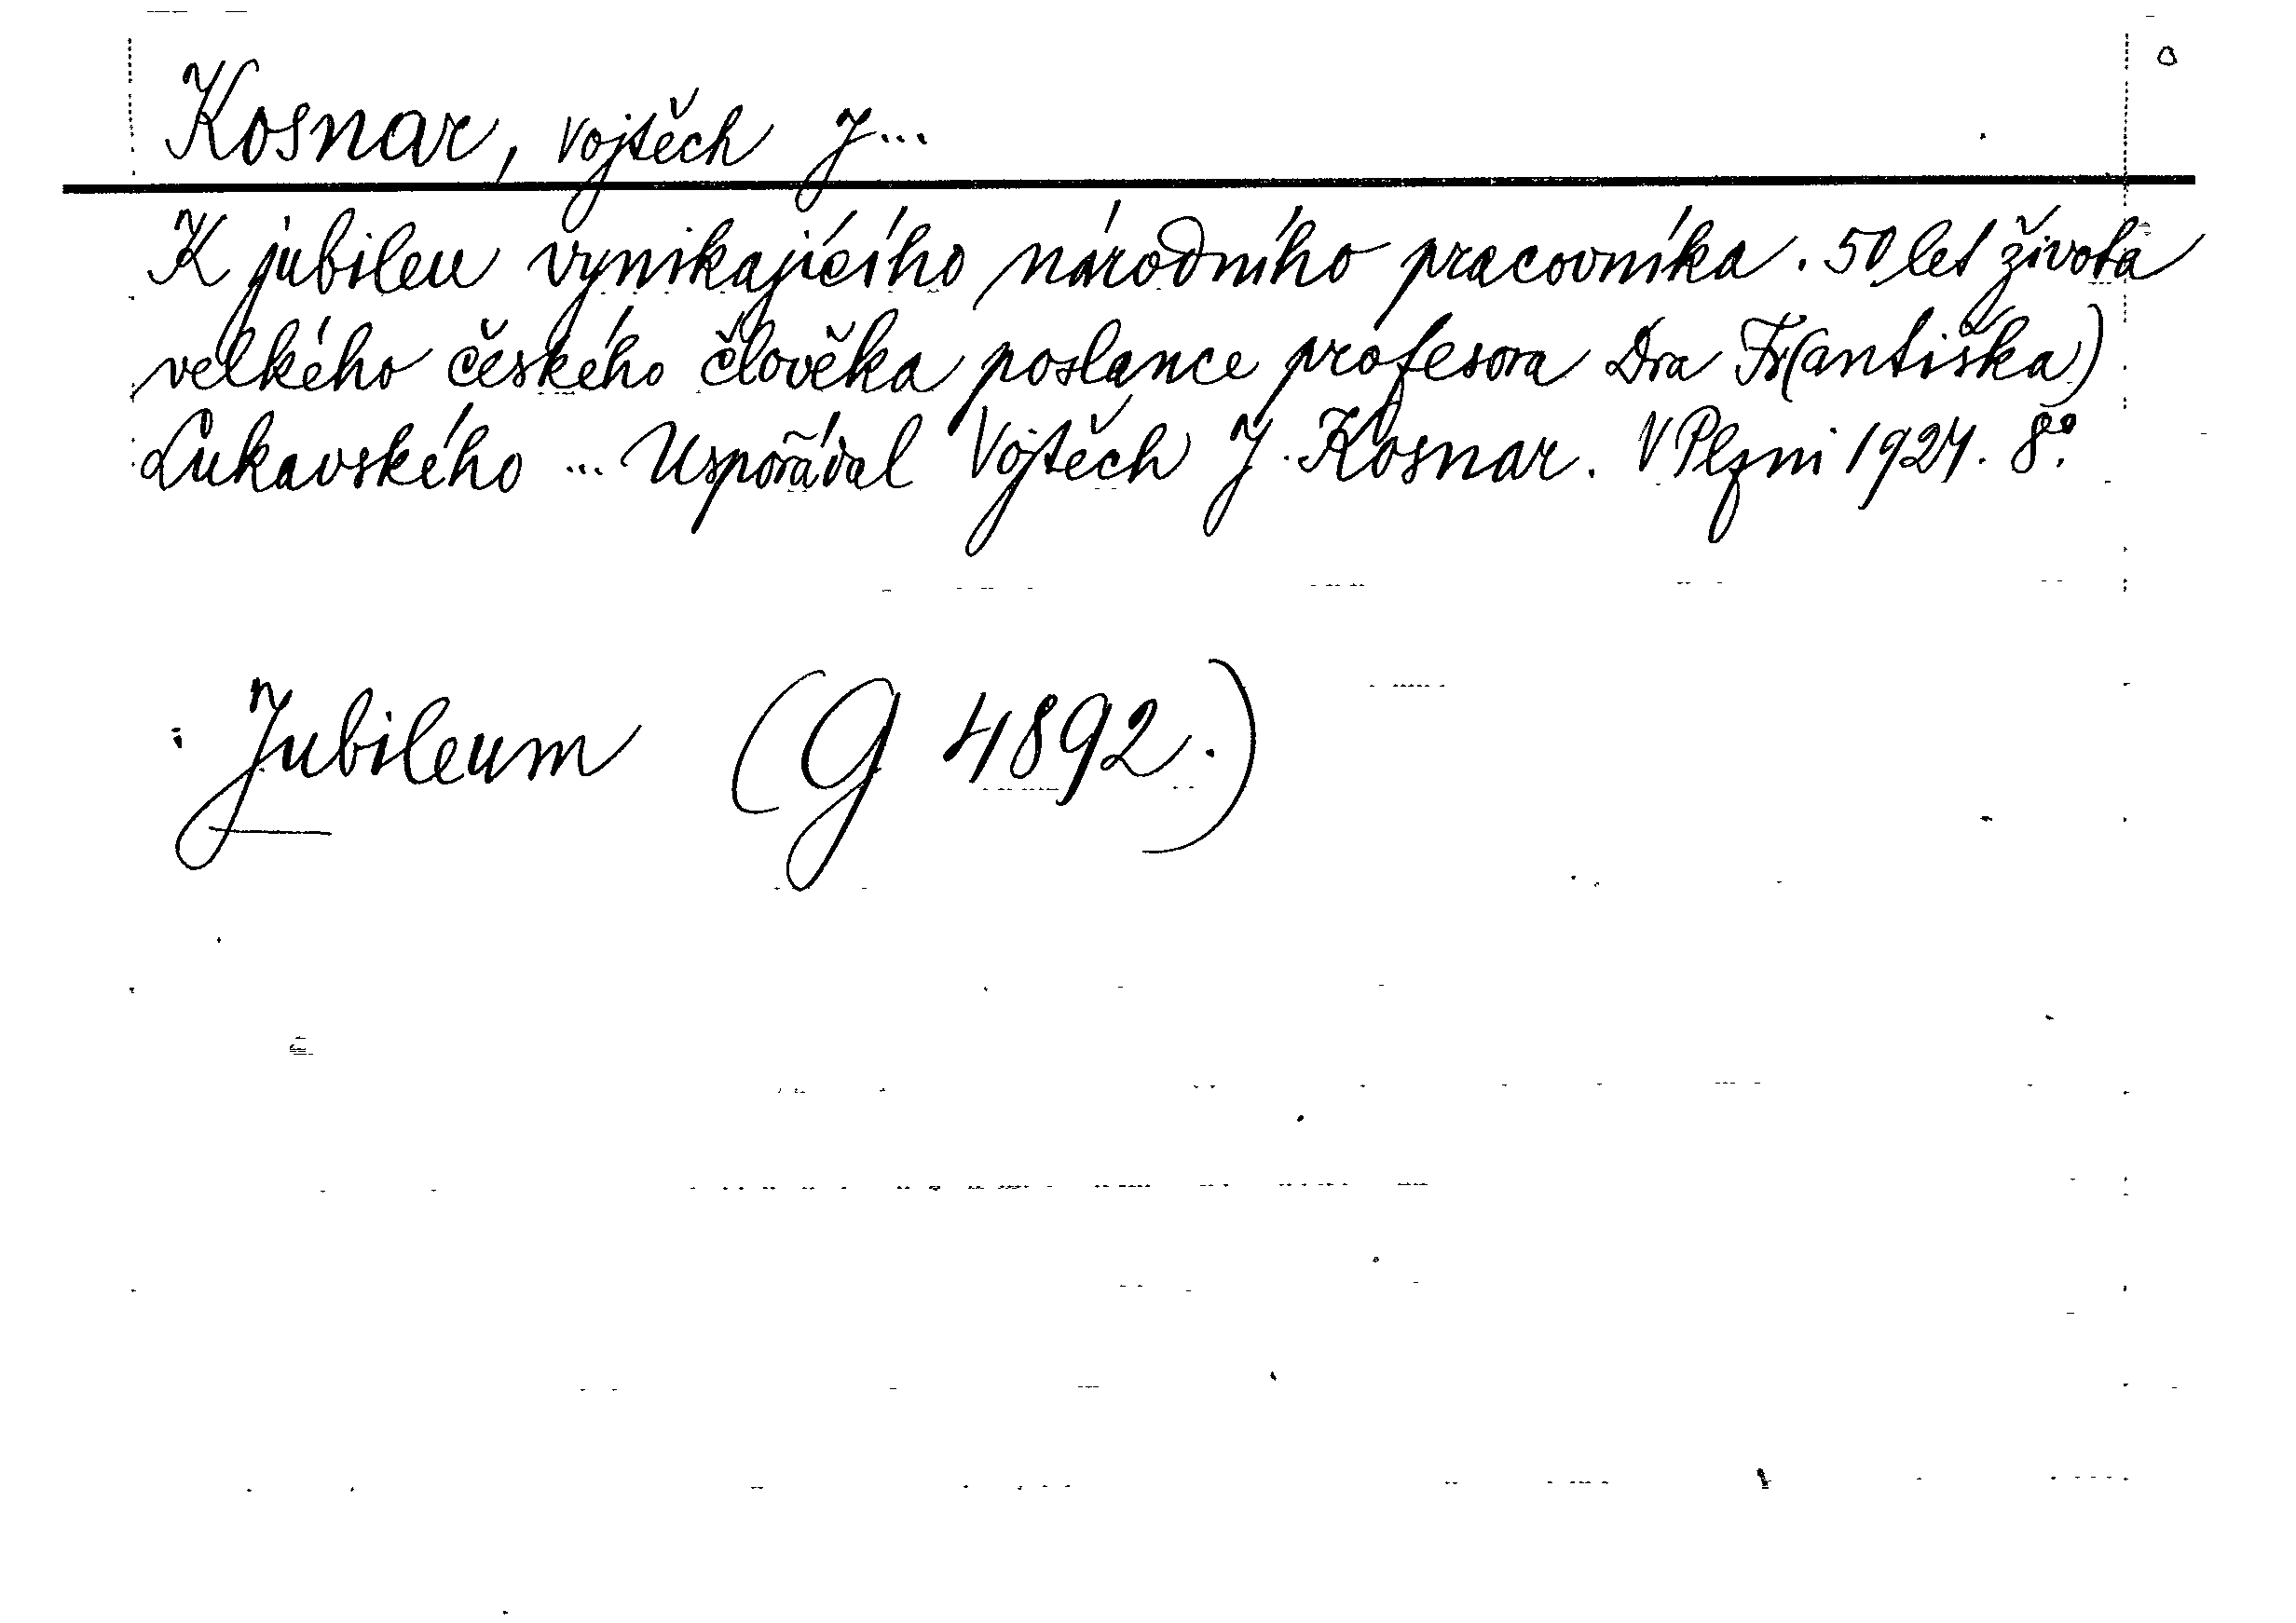 Kosnar, Vojtěch J...
K jubileu vynikajícího národního pracovníka. 50 let života
velkého českého člověka poslance profesora Dra Fr(antiška)
Lukavského ... Uspořádal Vojtěch J. Kosnar. V Plzni 1924. 8°.
Jubileum (G 4892.)